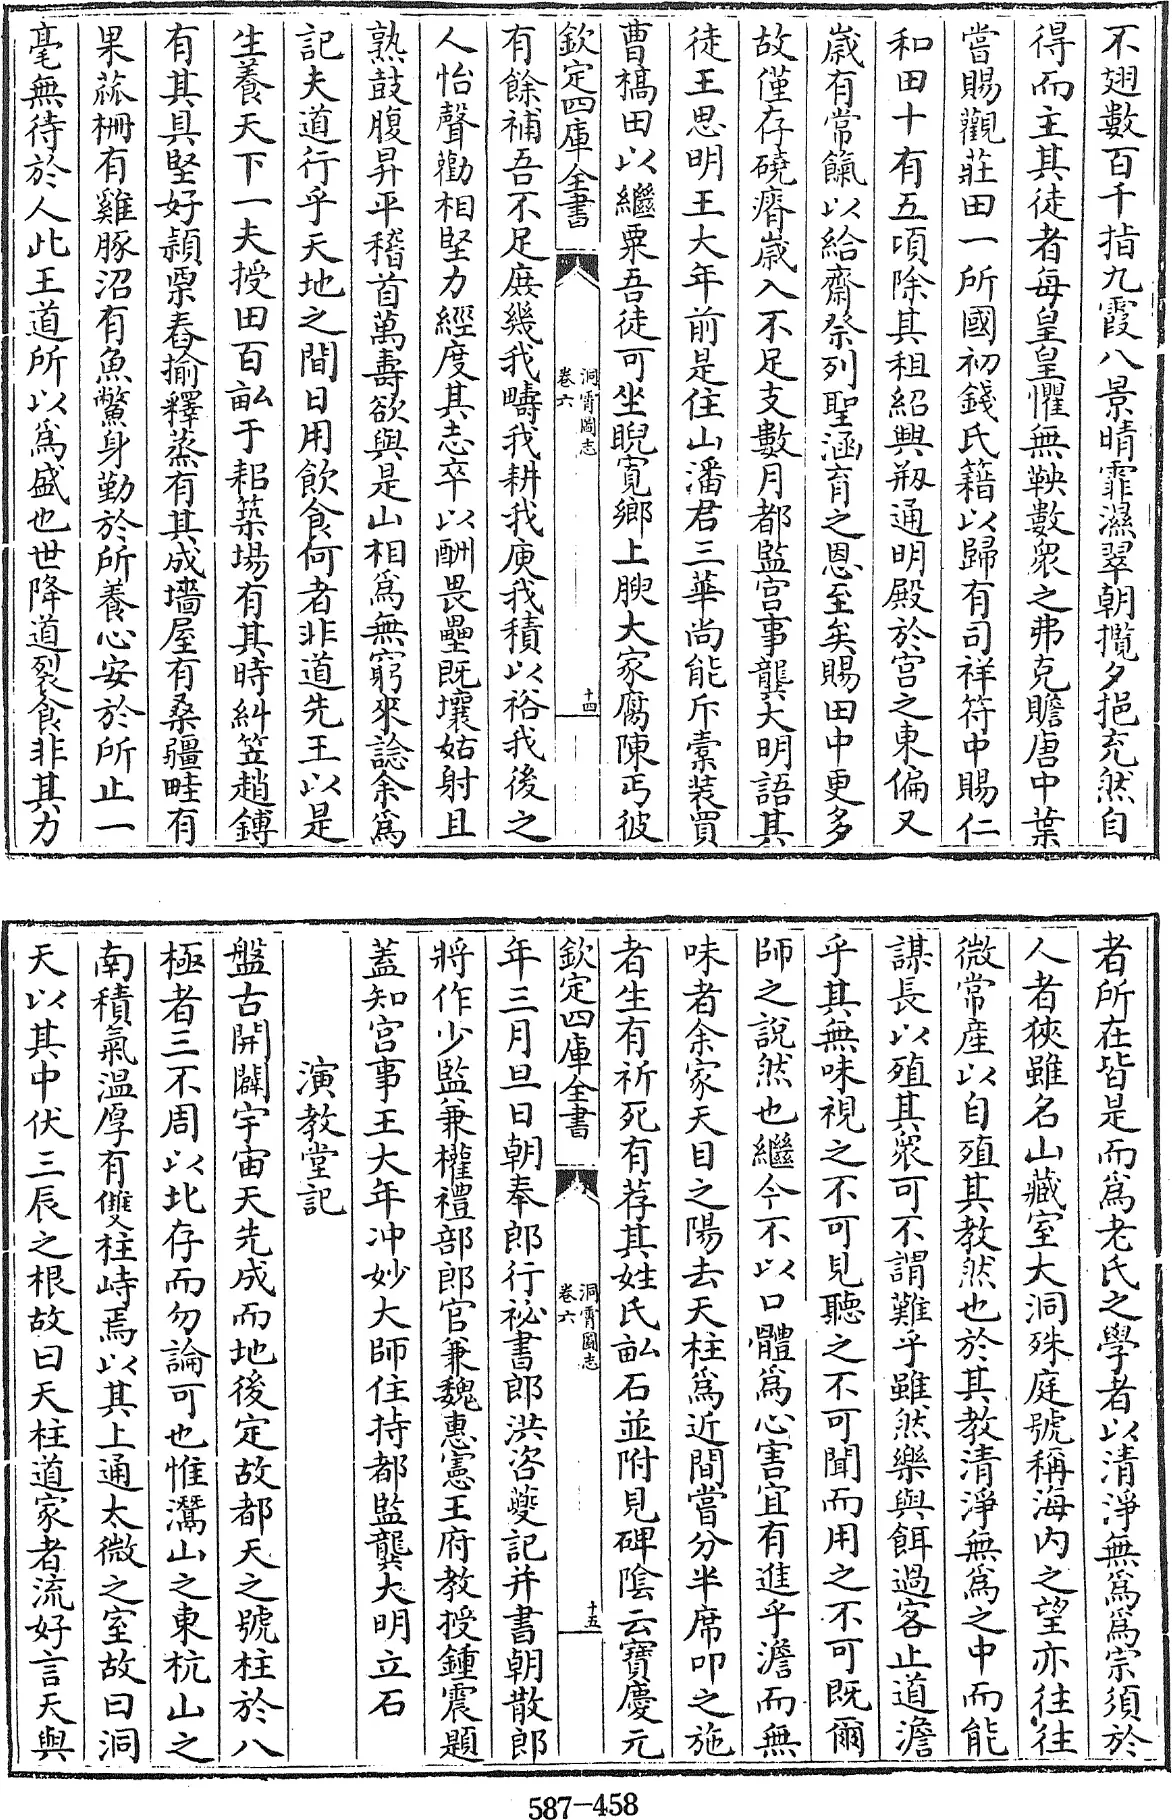 不翅數百千指九霞八景晴霏濕翠朝攬夕挹充然自
得而主其徒者每皇皇懼無鞅數衆之弗克贍唐中葉
嘗賜觀莊田一所國初錢氏籍以歸有司祥符中賜仁
和田十有五頃除其租紹興剏通明殿於宫之東偏又
歲有常餼以給齋祭列聖涵育之恩至矣賜田中更多
故僅存磽瘠歲入不足支數月都監宫事龔大明語其
徒王思明王大年前是住山潘君三華尚能斥橐装買
曹橋田以繼粟吾徒可坐睨寛鄉上腴大家腐陳丐彼
欽定四庫全書
洞霄圖志
卷六
十四
有餘補吾不足庻幾我疇我耕我庾我積以裕我後之
人怡聲勸相堅力經度其志卒以酬畏壘既壤姑射且
熟鼓腹昇平稽首萬壽欲與是山相爲無窮來諗余爲
記夫道行乎天地之間日用飲食何者非道先王以是
生養天下一夫授田百畝于耜築場有其時糾笠趙鎛
有其具堅好穎栗舂揄釋蒸有其成墻屋有桑疆畦有
果蓏柵有雞豚沼有魚鱉身勤於所養心安於所止一
毫無待於人此王道所以爲盛也世降道裂食非其力
者所在皆是而爲老氏之學者以清淨無爲爲宗須於
人者狹雖名山藏室大洞殊庭號稱海内之望亦往往
微常産以自殖其教然也於其教清淨無爲之中而能
謀長以殖其衆可不謂難乎雖然樂與餌過客止道澹
乎其無味視之不可見聽之不可聞而用之不可既爾
師之說然也繼今不以口體爲心害宜有進乎澹而無
味者余家天目之陽去天柱爲近間嘗分半席叩之施
者生有祈死有荐其姓氏畝石並附見碑陰云寶慶元
欽定四庫全書
洞霄圖志
卷六
十五
年三月旦日朝奉郎行祕書郎洪咨夔記并書朝散郎
將作少監兼權禮部郎官兼魏惠憲王府教授鍾震題
蓋知宫事王大年冲妙大師住持都監龔大明立石
演教堂記
盤古開闢宇宙天先成而地後定故都天之號柱於八
極者三不周以北存而勿論可也惟灊山之東杭山之
南積氣温厚有雙柱峙焉以其上通太微之室故曰洞
天以其中伏三辰之根故曰天柱道家者流好言天與
587-458